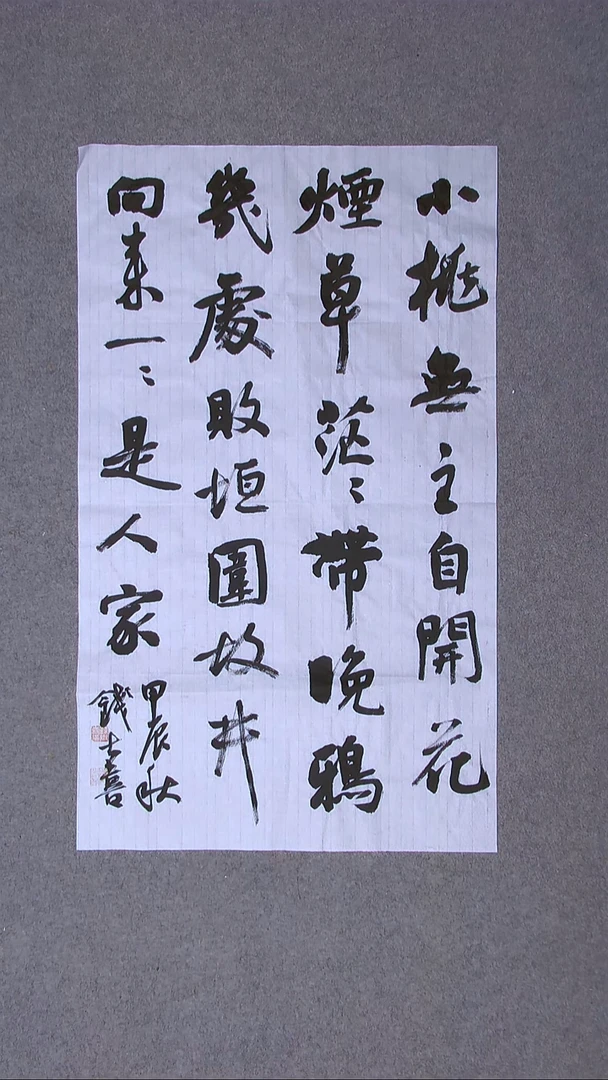 小桃無主自開花
煙草茫〻帶晚鴉
幾處敗垣圍故井
向来一〻是人家
甲辰秋
錢士喜